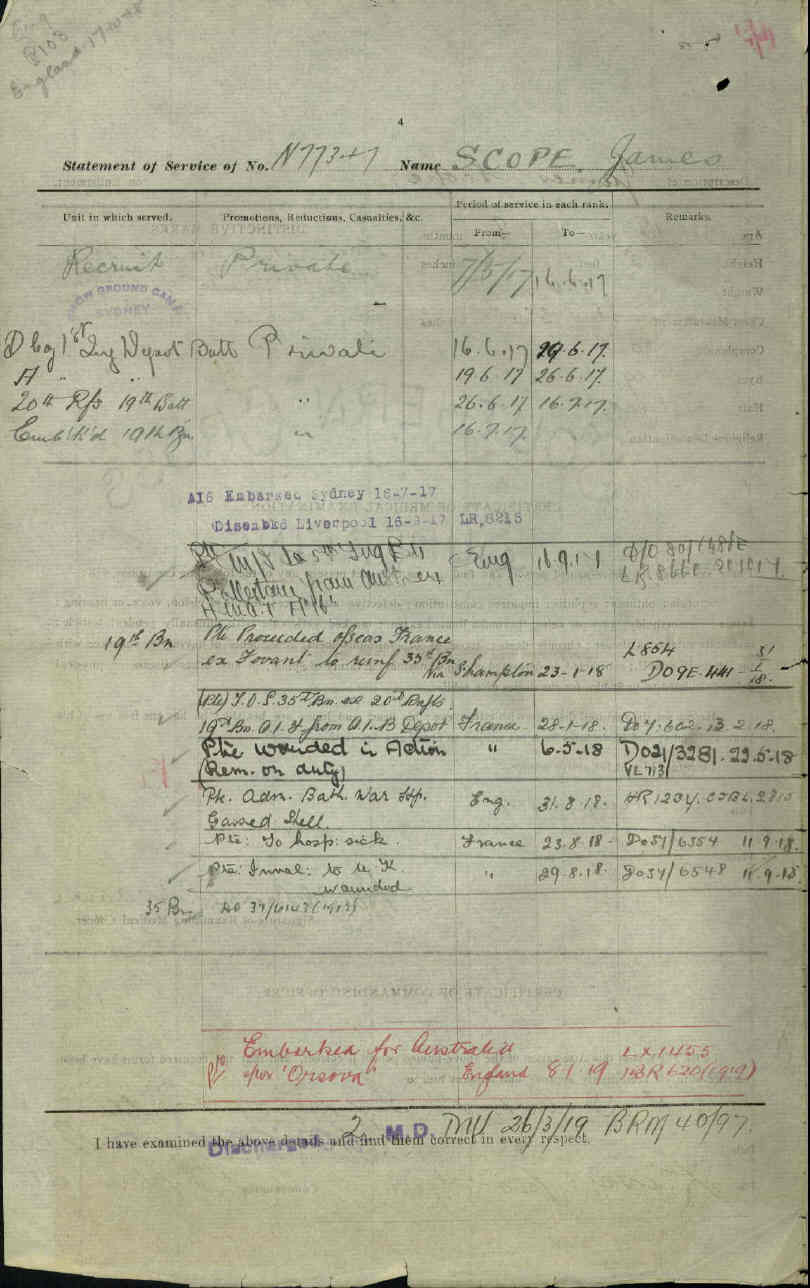 England 17-10-18
4
Statement of Service of No. N77347 Name SCOPE, James
Unit in which served. Promotions, Reductions, Casualties, &c. Period of service in each rank. Remarks.
From— To—
Recruit Private 7/5/17 16.6.17
SHOW GROUND CAMP
SYDNEY
D Coy 1st Inf Depot Batt Private 16.6.17 19.6.17.
A " " 19 6 17 26-6-17.
20th Rfs 19th Batt " 26.6.17 16.7.17.
Emb'k'd 19th Bn. " 16.7.17.
A16 Embarked Sydney 16-7-17
Disembkd Liverpool 16-9-17 LR,8215
Pte Eng 16.9.17
from Aust ex
19th Bn Pte Proceeded o/seas France L 854
ex Fovant to reinf 35th Bn via S'hampton 23-1-18 DO9E 441
(Pte) T.O.S. 35th Bn. ex 20th Rfts
19th Bn A.I.F from A.I.B Depot France 28-1-18. Do 7.602.13.2.18.
Pte wounded in Action " 6-5-18 DO21/3281. 22.5-18
(Rem. on duty)
Pte. Adm. Bath. War Hp. Eng. 31.8.18.
Gassed Shell.
Pte: To hosp: sick. France 23.8.18 Do57/6354 11.9.18.
Pte: Inval: to U.K. " 29.8.18. Do57/6548
wounded
35 Bn
Embarked for Australia LX1455
Pte per "Orsova" England 8 1 19 BR 620 (1919)
2. MU 26/3/19 BRM 40/97.
I have examined the above details and find them correct in every respect.
Discharged M.D.